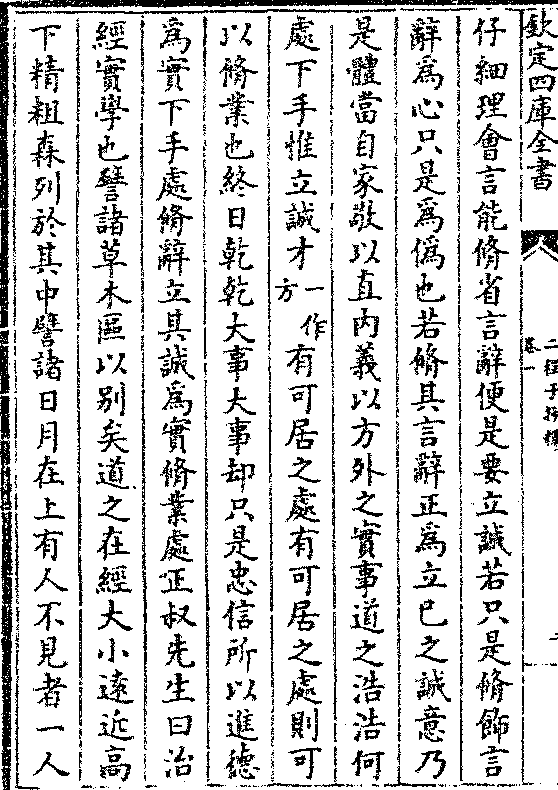 欽定四庫全書
卷一
仔細理會言能脩省言辭便是要立誠若只是脩飾言
辭為心只是為偽也若脩其言辭正為立己之誠意乃
是體當自家敬以直內義以方外之實事道之浩浩何
處下手惟立誠才一作方有可居之處有可居之處則可
以脩業也終日乾乾大事大事却只是忠信所以進德
為實下手處脩辭立其誠為實脩業處正叔先生曰治
經實學也譬諸草木區以別矣道之在經大小遠近高
下精粗森列於其中譬諸日月在上有人不見者一人